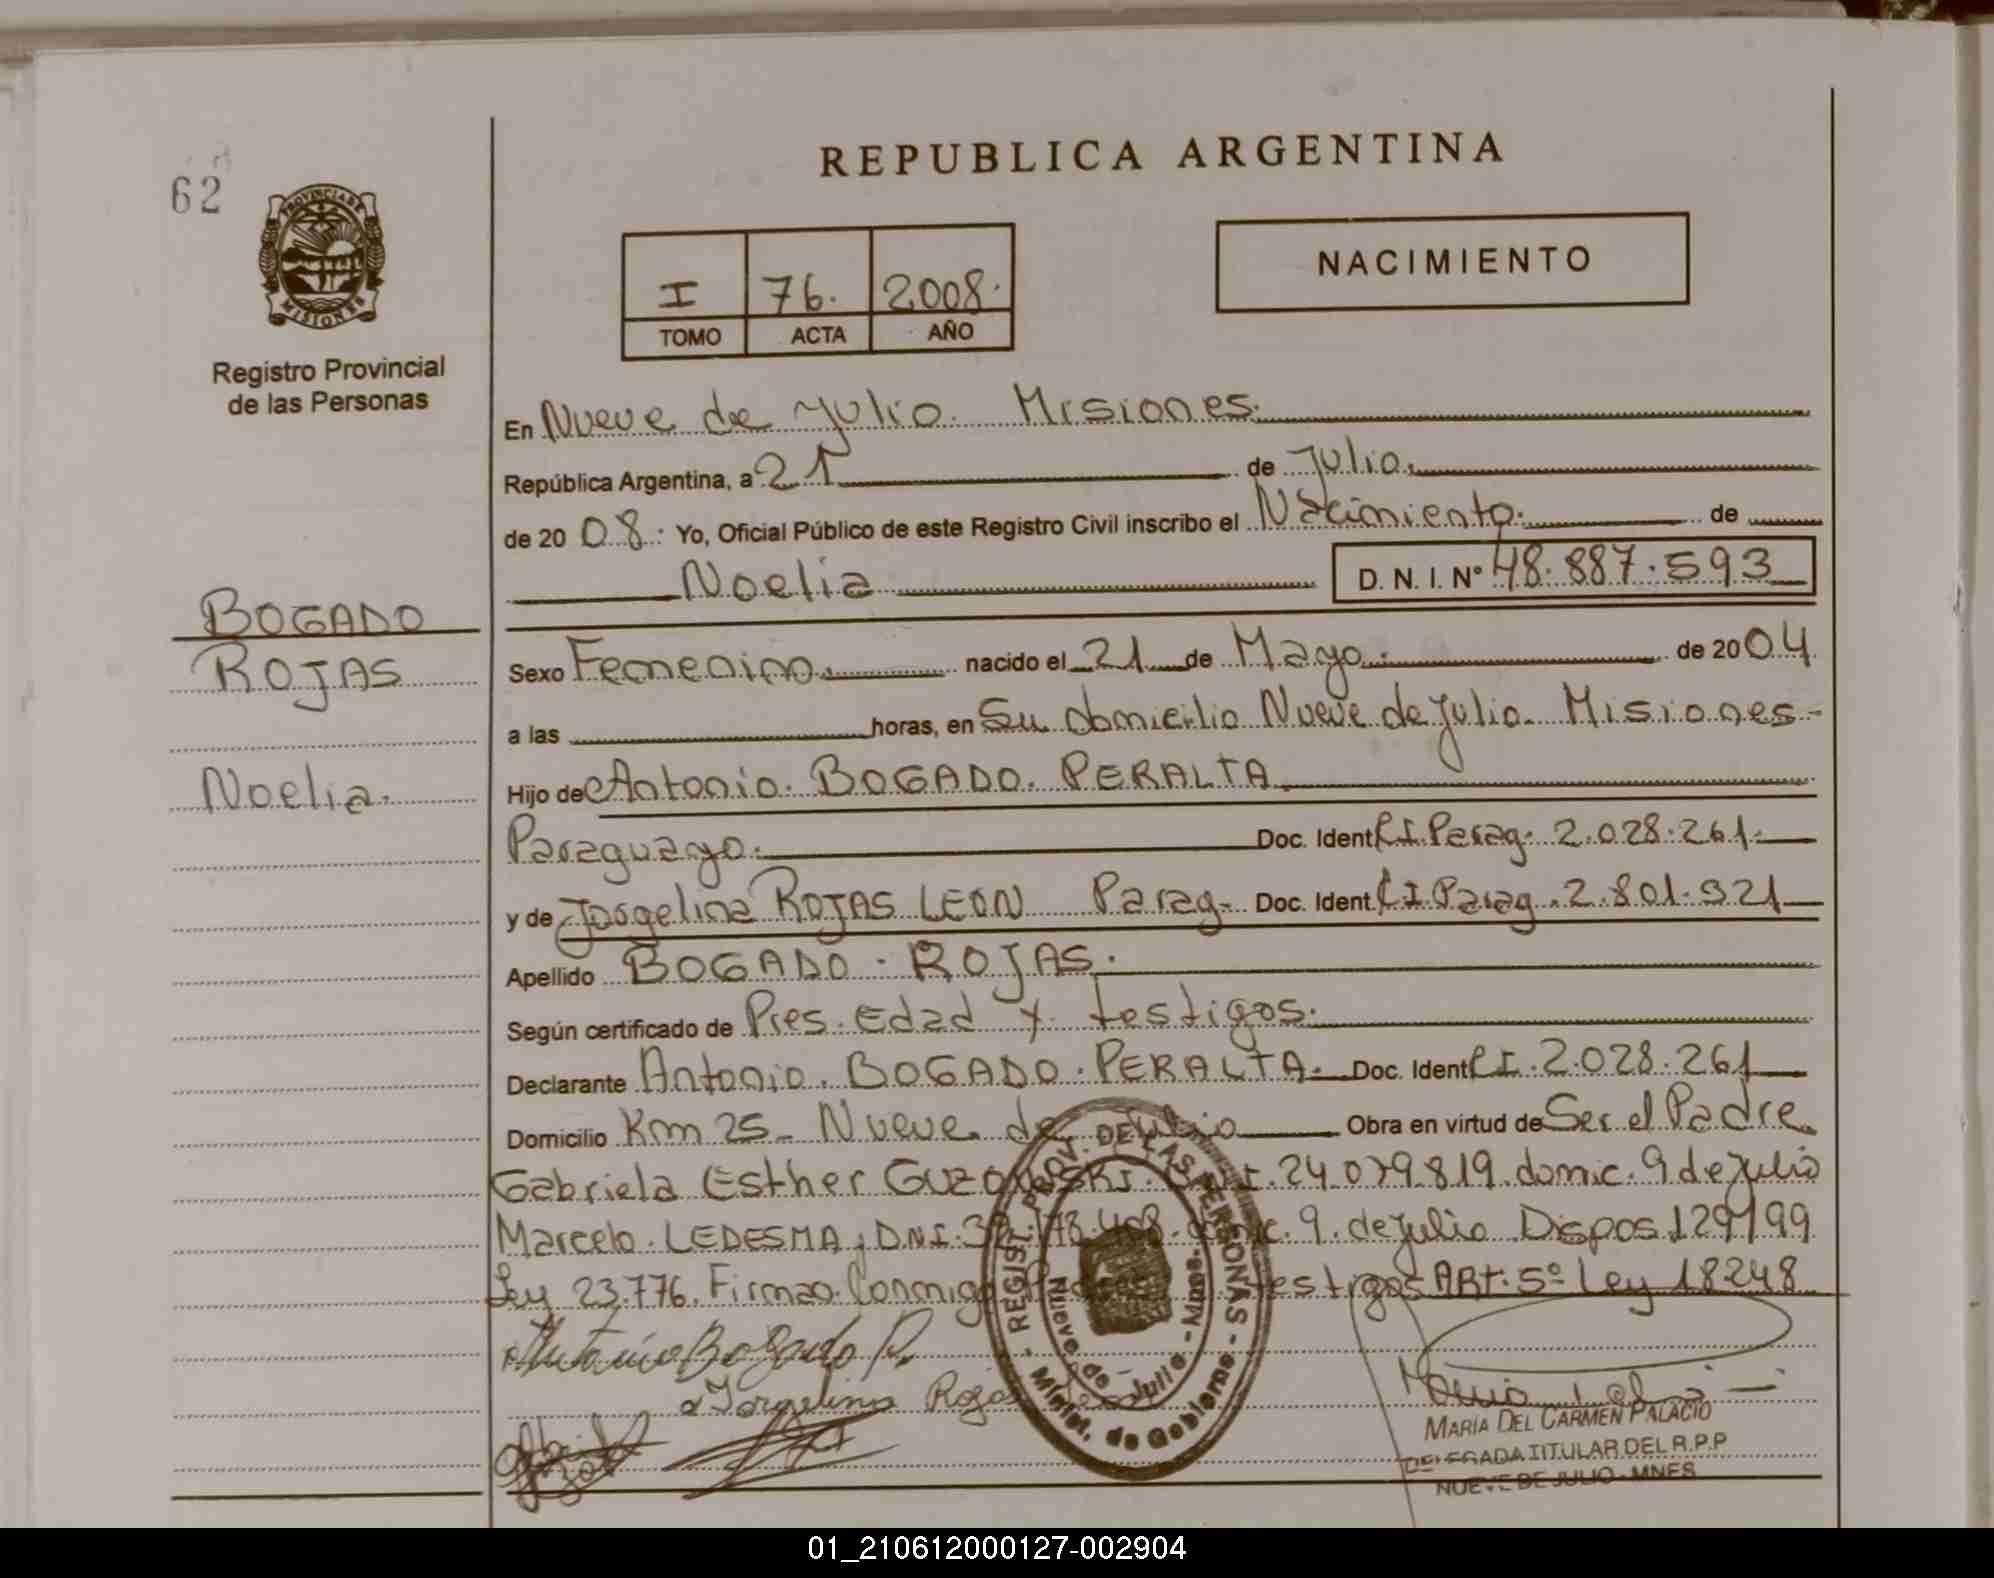 62
PROVINCIA DE
MISIONES
Registro Provincial
de las Personas
BOGADO
ROJAS
Noelia.
REPUBLICA ARGENTINA
I 76. 2008.
TOMO ACTA AÑO
NACIMIENTO
En Nueve de Julio. Misiones.
República Argentina, a 21 de Julio.
de 20 08. Yo, Oficial Público de este Registro Civil inscribo el Nacimiento. de
Noelia D. N. I. Nº 48.887.593
Sexo Femenino. nacido el 21 de Mayo. de 2004
a las horas, en Su domicilio Nueve de Julio. Misiones-
Hijo de Antonio. BOGADO. PERALTA
Paraguayo. Doc. Ident. C.I. Parag. 2.028.261.
y de Jorgelina ROJAS LEON Parag. Doc. Ident. C.I. Parag. 2.801.921
Apellido BOGADO. ROJAS.
Según certificado de Pres. Edad y testigos.
Declarante Antonio. BOGADO. PERALTA. Doc. Ident. C.I. 2.028.261
Domicilio Km 25- Nueve de Julio Obra en virtud de Ser el Padre.
Gabriela Esther 24.079.819. domic. 9 de Julio
Marcelo. LEDESMA, D.N.I. 9. de Julio Dispos. 129/99
Ley 23.776. Firman Conmigo testigos ART. 5º Ley 18248
Antonio Bogado P.
Jorgelina Rojas
REGIST. PROV. DE LAS PERSONAS - Minist. de Gobierno -
Nueve de Julio - Mnes.
MARÍA DEL CARMEN PALACIO
DELEGADA TITULAR DEL R.P.P
NUEVE DE JULIO - MNES
01_210612000127-002904